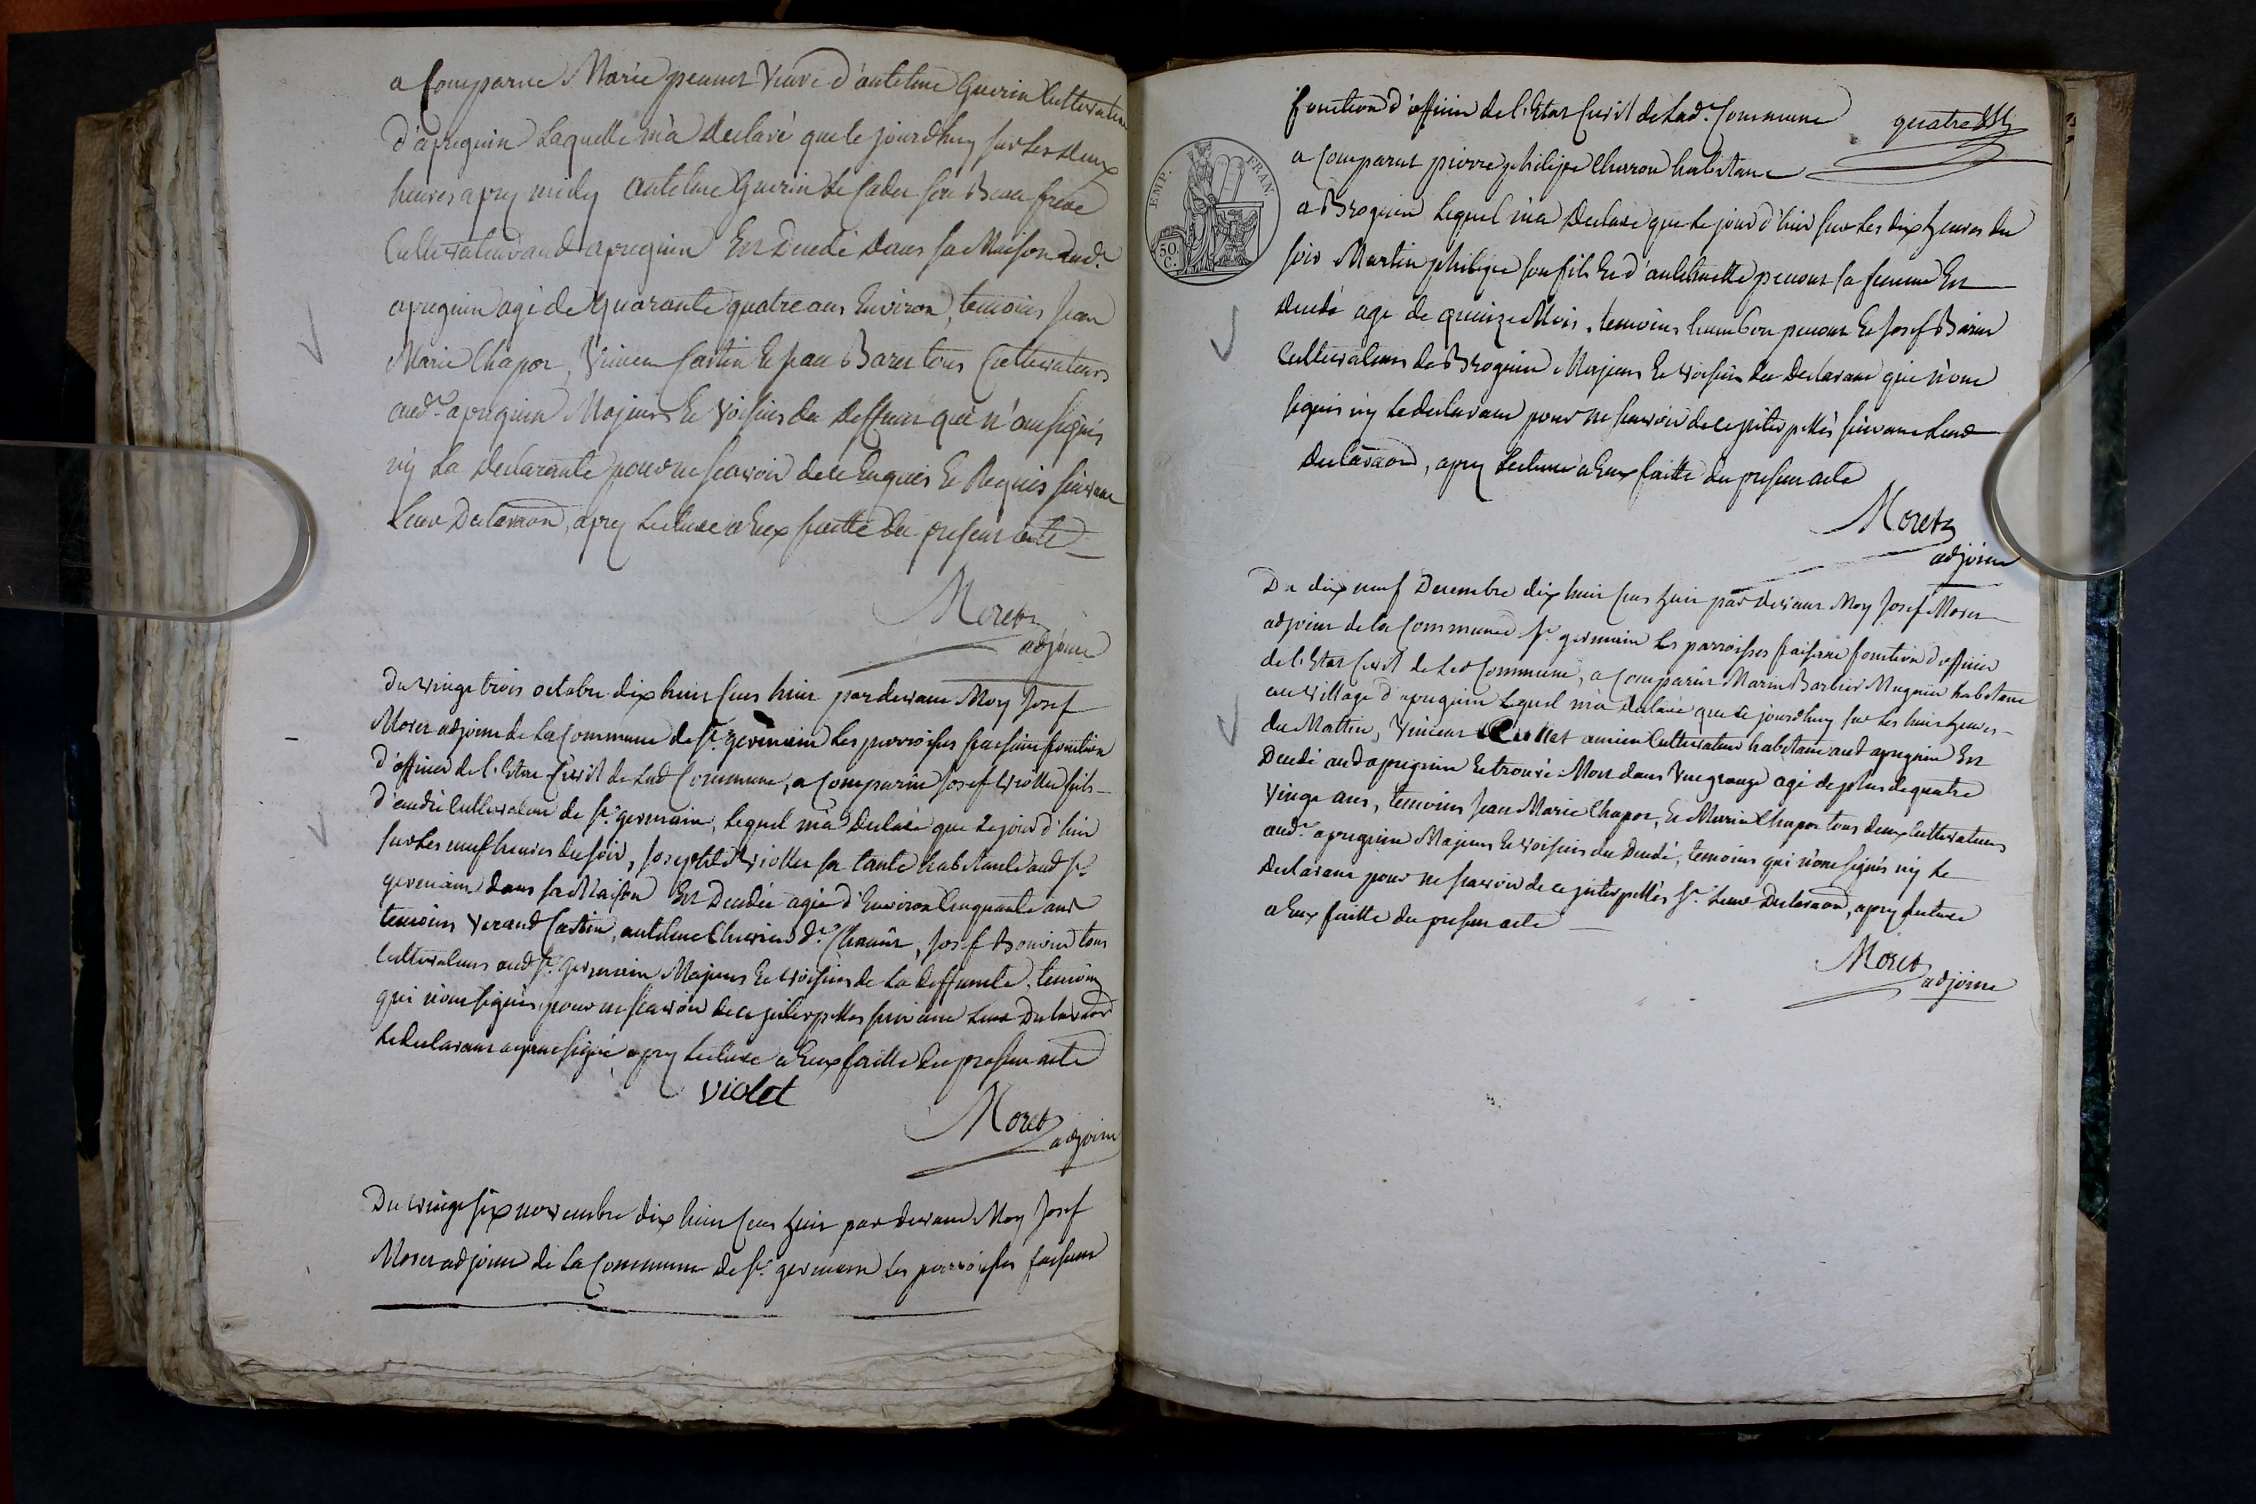 a Comparue Marie peauet Veuve d'antelme Guerin Cultivateur
d'apreguin Laquelle m'a declaré que le jourdhuy sur les deux
heures apres midy antelme Guerin le Cadet son Beau frere
Cultivateur aud apreguin Est Decedé Dans sa Maison aud.
apreguin agé de quarante quatre ans Environ, temoins Jean
Marie Chapot, Vincen Castin Et jean Baret tous Cultivateurs
aud. apreguin Majeurs Et Voisins du deffunt qui n'on signés
ny La Declarante pour ne scavoir de ce Enquis Et Requis suivant
Leur Declaraon, apres Lecture a Eux faitte du present acte
Moret
adjoint
Du vingt trois octobre dix huit Cens huit pardevant Moy Josef
Moret adjoint de la Commune de St. germain Les parroisses faisant fonction
d'officier de l'Etat Civil de Lad Commune, a Comparu Josef Viollet fils
d'andré Cultivateur de St. germain, Lequel m'a Declaré que Le jour d'hier
sur les neuf heures du soir, Josephte Viollet sa tante habitante aud St.
germain dans sa Maison Est Decedée agée d'Environ Cinquante ans
temoins Verand Castin, antelme , Josef Bouvier tous
Cultivateurs aud St. Germain Majeurs Et voisins de La deffunte, temoins
qui n'ont signés pour ne scavoir de ce jnterpellés suivant Leur Declaraon
Le declarant ayant signé apres Lecture a Eux faitte du present acte
violet
Moret
adjoint
Du vingt six novembre dix huit Cens huit par devant Moy Josef
Moret adjoint de La Commune de St. germain Les parroisses faisant
fonction d'officier de l'Etat Civil de Lad. Commune
quatre
EMP. FRAN.
50 C.
a Comparut pierre philipe Charron habitant
a Brognin Lequel m'a Declaré que Le jour d'hier sur Les dix heures du
soir Martin philipe son fils Et d'anthelmette penout sa femme Est
Decedé agé de quinze Mois, temoins humber penout Et Josef Baret
Cultivateurs de Brognin Majeurs Et voisins du Declarant qui n'ont
signés ny Le declarant pour ne scavoir de ce jnterpellés suivant Leur
Declaraon, apres Lecture a Eux faitte du present acte
Moret
adjoint
Du dix neuf Decembre dix huit Cens huit par devant Moy Josef Moret
adjoint de la Commune St. germain Les parroisses faisant fonction d'officier
de l'Etat Civil de Lad Commune, a Comparut Marin Barbier Magnin habitant
au village d'apreguin Lequel m'a declaré que Le jourdhuy sur Les huit heures
du Mattin, Vincent Cullet ancien Cultivateur habitant aud apreguin Est
Decedé aud apreguin Et trouvé Mort dans Une grange agé de plus de quatre
vingt ans, temoins Jean Marie Chapot, Et Marin Chapot tous deux Cultivateurs
aud. apreguin Majeurs Et voisins du Decedé, temoins qui n'ont signés ny Le
Declarant pour ne scavoir de ce jnterpellés St. Leur Declaraon, apres Lecture
a Eux faitte du present acte
Moret
adjoint